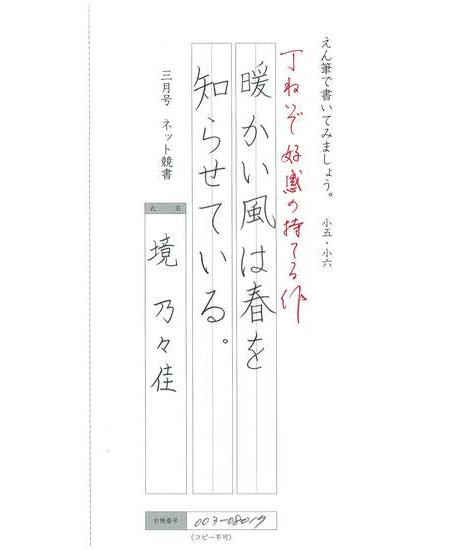 えん筆で書いてみましょう。 小五・小六
丁ねいで好感の持てる作
暖かい風は春を
知らせている。
三月号 ネット競書
氏 名
境 乃々佳
台帳番号
(コピー不可)